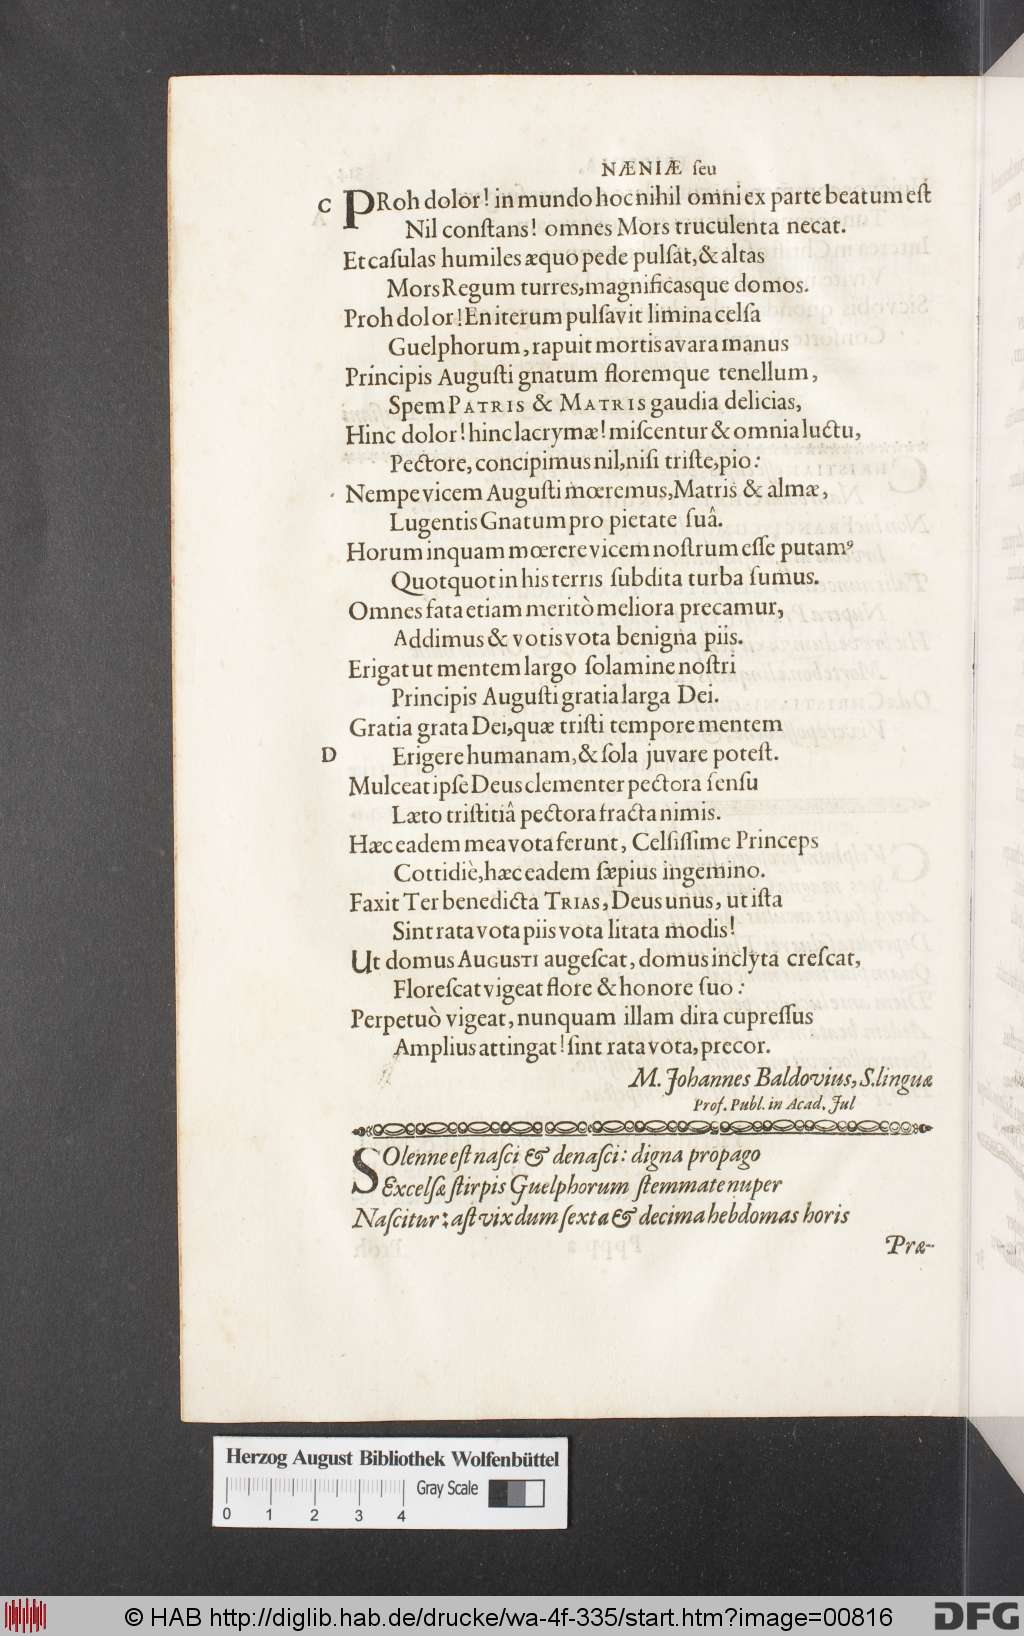 NÆNIÆ ſeu
C PRoh dolor! in mundo hoc nihil omni ex parte beatum eſt
Nil conſtans! omnes Mors truculenta necat.
Et caſulas humiles æquo pede pulſat, & altas
Mors Regum turres, magnificasque domos.
Proh dolor! En iterum pulſavit limina celſa
Guelphorum, rapuit mortis avara manus
Principis Auguſti gnatum floremque tenellum,
Spem PATRIS & MATRIS gaudia delicias,
Hinc dolor! hinc lacrymæ! miſcentur & omnia luctu,
Pectore, concipimus nil, niſi triſte, pio:
Nempe vicem Auguſti mœremus, Matris & almæ,
Lugentis Gnatum pro pietate ſuâ.
Horum inquam mœrere vicem noſtrum eſſe putamꝰ
Quotquot in his terris ſubdita turba ſumus.
Omnes fata etiam meritò meliora precamur,
Addimus & votis vota benigna piis.
Erigat ut mentem largo ſolamine noſtri
Principis Auguſti gratia larga Dei.
Gratia grata Dei, quæ triſti tempore mentem
D Erigere humanam, & ſola juvare poteſt.
Mulceat ipſe Deus clementer pectora ſenſu
Læto triſtitiâ pectora fracta nimis.
Hæc eadem mea vota ferunt, Celſiſſime Princeps
Cottidiè, hæc eadem ſæpius ingemino.
Faxit Ter benedicta TRIAS, Deus unus, ut iſta
Sint rata vota piis vota litata modis!
Ut domus AUGUSTI augeſcat, domus inclyta creſcat,
Floreſcat vigeat flore & honore ſuo:
Perpetuò vigeat, nunquam illam dira cupreſſus
Amplius attingat! ſint rata vota, precor.
M. Johannes Baldovius, S. linguæ
Prof. Publ. in Acad. Jul
SOlenne eſt naſci & denaſci: digna propago
Excelſæ ſtirpis Guelphorum ſtemmate nuper
Naſcitur: aſt vix dum ſexta & decima hebdomas horis
Præ-
Herzog August Bibliothek Wolfenbüttel
Gray Scale
0 1 2 3 4
© HAB http://diglib.hab.de/drucke/wa-4f-335/start.htm?image=00816
DFG